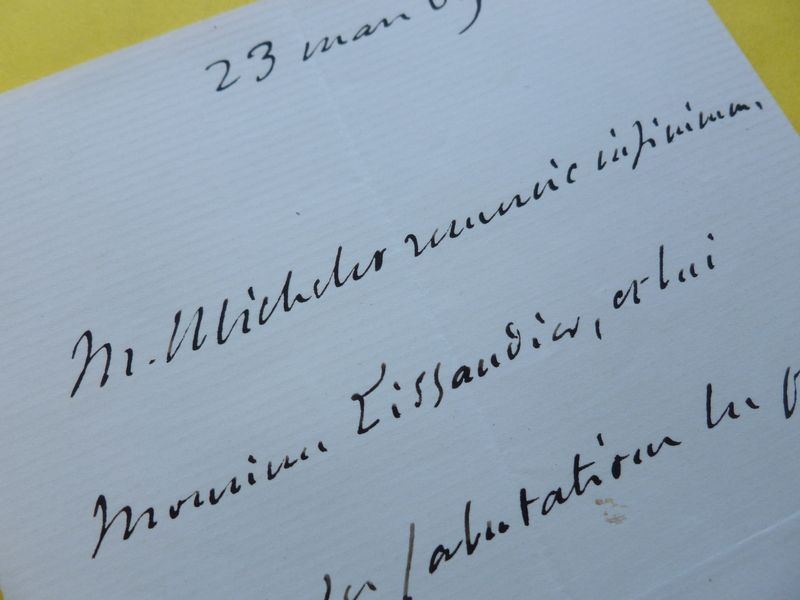 23 mars 69
M. Michelet remercie infiniment
Monsieur Tissandier, et lui
les salutations les p